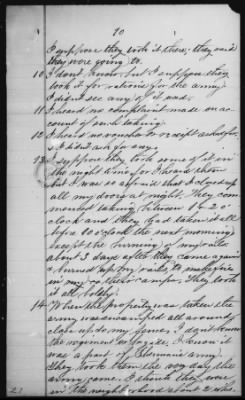 10
I suppose they took it there; they said
they were going to.
10 I dont know, but I suppose they
took it for rations for the army
I didnt see any of it used.
11 I heard no complaint made on ac
count of such taking
12 I heard no voucher or receipt asked for
& I didnt ask for any.
13 I suppose they took some of it in
the night time for I heard them
but I was so afraid that I closed up
all my doors at night. They com
menced taking between 1 & 2 o
clock and they had taken it all
before 10 oclock the next morning
except the burning of my rails
about 3 days after they came again
& burned up my rails, to make fire
in my & their camps. They took
it all boldly.
14 When the property was taken the
army was encamped all around
close up to my fence, I dont know
the regiment or brigade, I know it
was a part of Shermans army.
They took them the very day the
army came. I think they were
in the neighborhood about 2 wks.